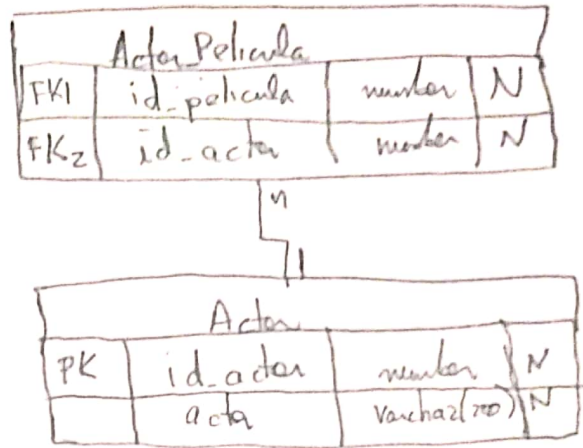 Actor_Pelicula
FK1 id_pelicula number N
FK2 id_actor number N
n
1
Actor
PK id_actor number N
actor Varchar2(200) N